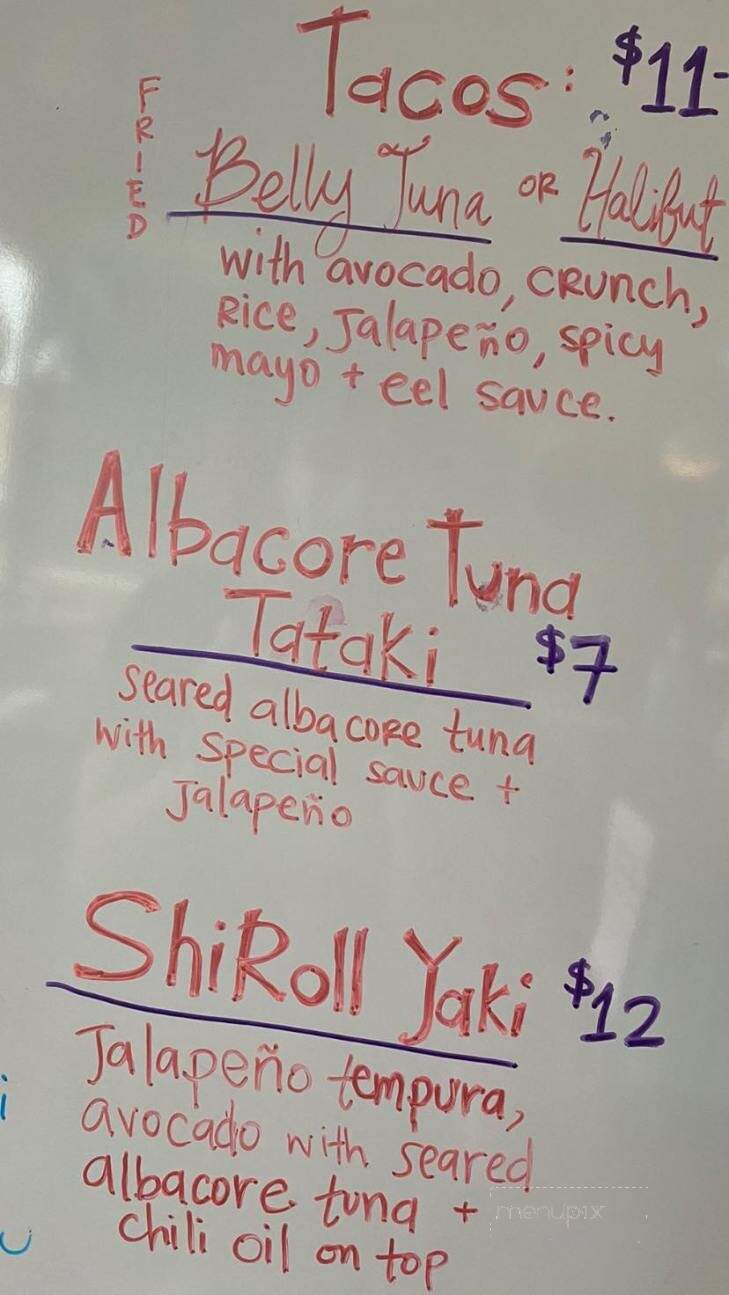 Tacos: $11-
FRIED
Belly Tuna OR Halibut
with avocado, CRUnch,
Rice, Jalapeño, spicy
mayo + eel sauce.
Albacore Tuna
Tataki $7
seared albacoRe tuna
with special sauce +
Jalapeño
ShiRoll Yaki $12
Jalapeño tempura,
avocado with seared
albacore tuna +
menupix
chili oil on top